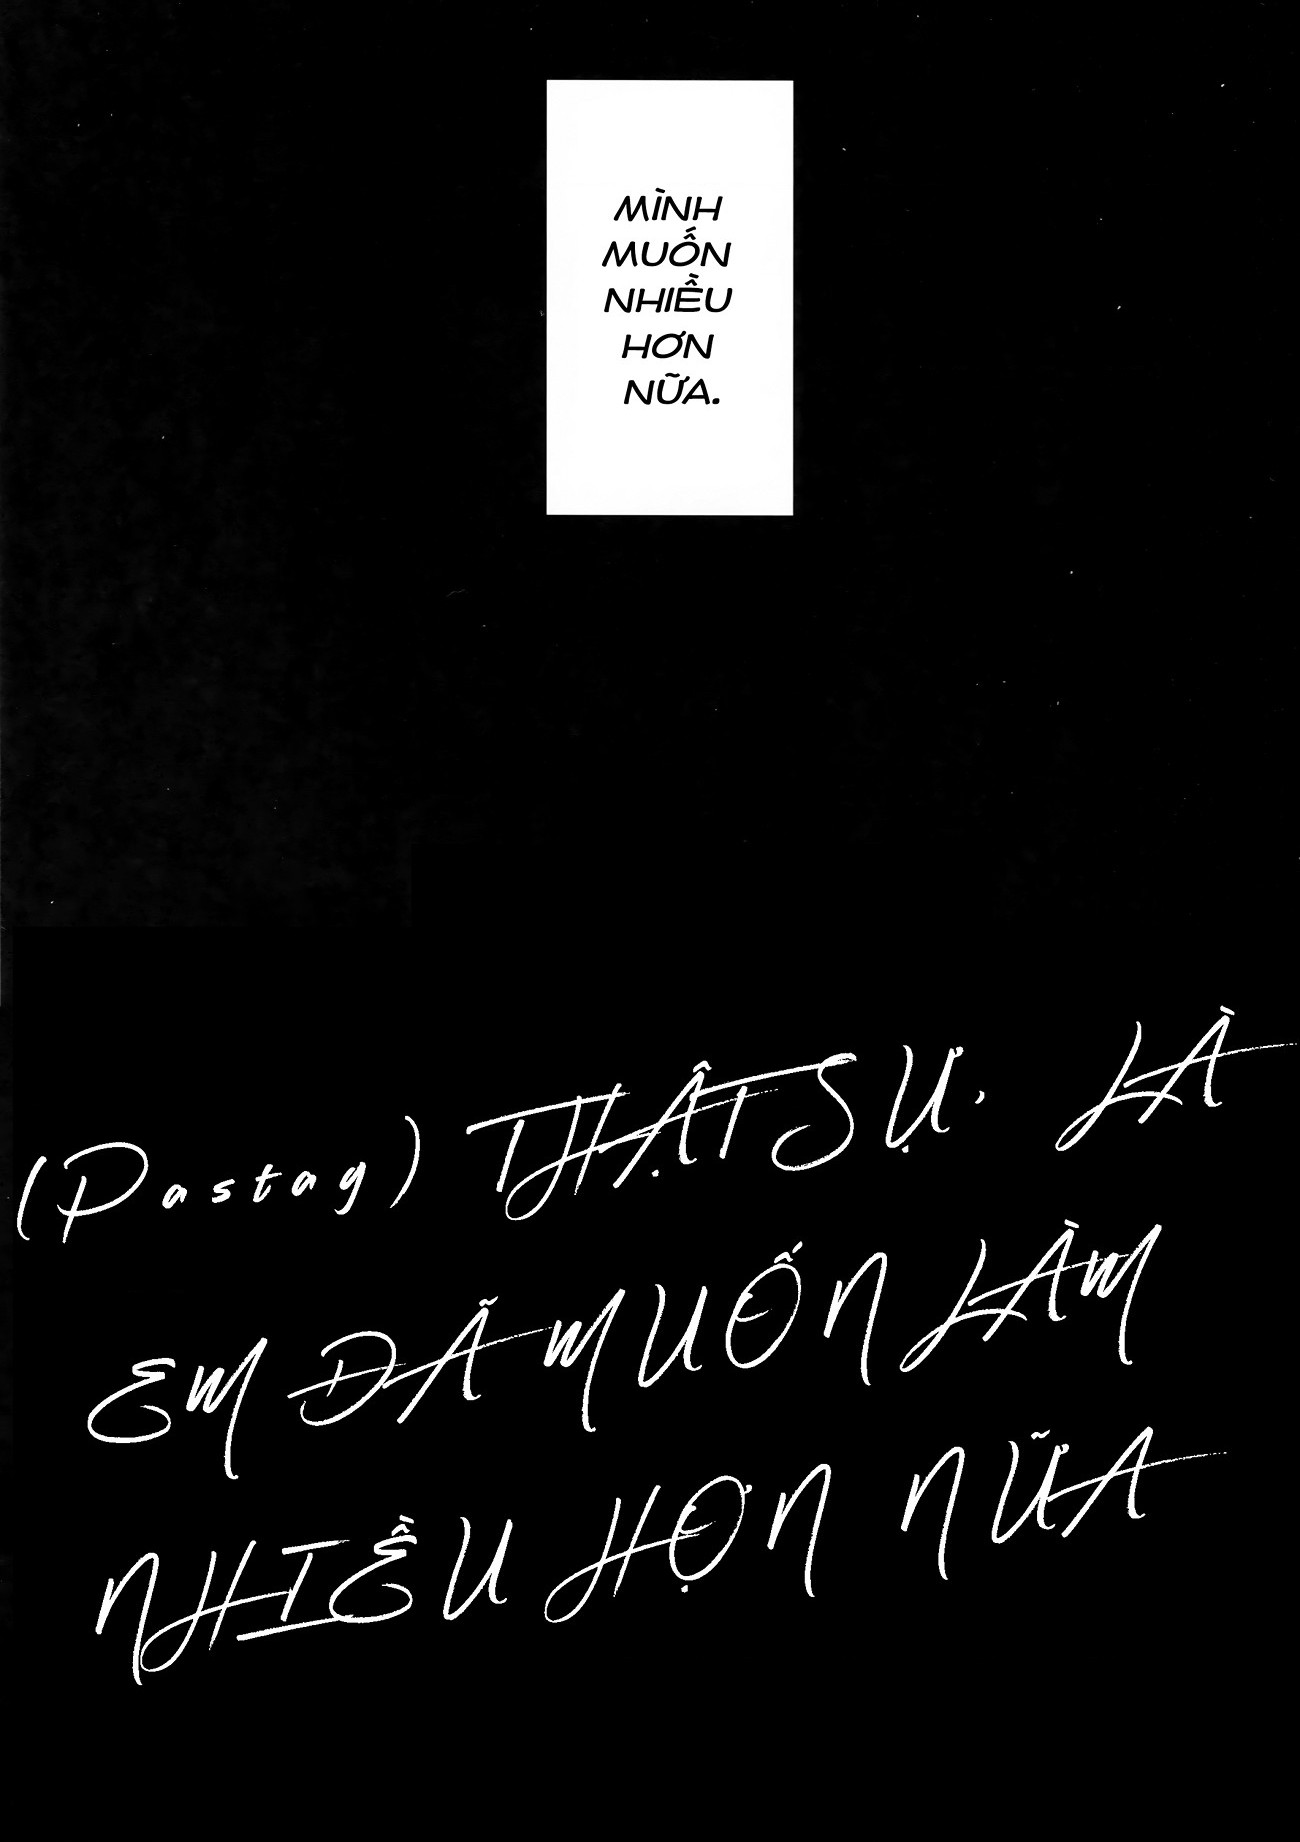 MÌNH
MUỐN
NHIỀU
HƠN
NỮA.
(Pastag) THẬT SỰ, LÀ
EM ĐÃ MUỐN LÀM
NHIỀU HỢN NỮA